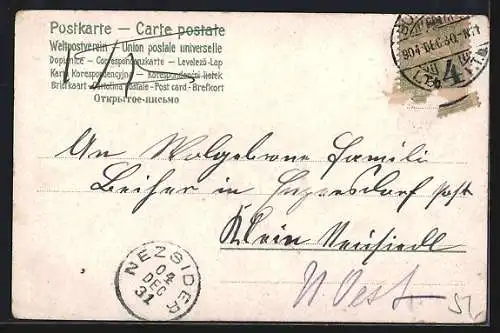 Postkarte — Carte postale
Weltpostverein — Union postale universelle
Dopisnice — Correspondenzkarte — Levelező-Lap
Karta Korespondencyjna — Korespondenční listek
Briefkaart — Cartolina postale — Post card — Brefkort
Открытое письмо
904 DEC 30
4
An Wolgeborne Familie
Beiher in Post
Klein Neusiedl
NEZSIDER
04
DEC
31
West